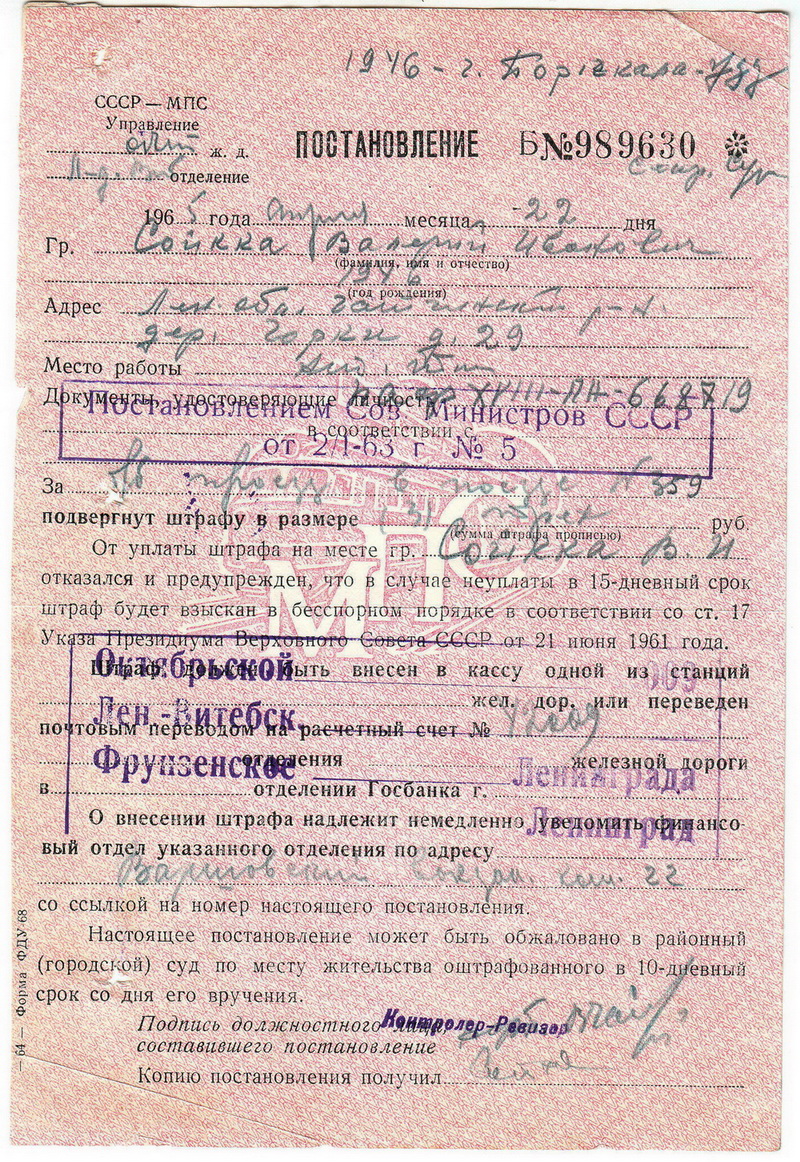 1946 - г.
СССР — МПС
Управление
ж. д.
ПОСТАНОВЛЕНИЕ
Б№989630
отделение
1965 года апреля месяца 22 дня
Гр. Сойкка Валерий Иванович
(фамилия, имя и отчество)
1946
(год рождения)
Адрес Лен обл. Гатчинский р-н.
дер. Горки д. 29
Место работы
Документы, удостоверяющие личность XVIII-ПА-668719
Постановлением Сов. Министров СССР
в соответствии с
от 2/I-63 г № 5
За проезд в поезде № 359
МПС
подвергнут штрафу в размере (3) трех руб.
(сумма штрафа прописью)
От уплаты штрафа на месте гр. Сойкка В. И
отказался и предупрежден, что в случае неуплаты в 15-дневный срок
штраф будет взыскан в бесспорном порядке в соответствии со ст. 17
Указа Президиума Верховного Совета СССР от 21 июня 1961 года.
Штраф должен быть внесен в кассу одной из станций
Октябрьской
жел. дор. или переведен
Лен.-Витебск.
почтовым переводом на расчетный счет №
отделения железной дороги
Фрунзенское Ленинграда
в отделении Госбанка г.
Ленинград
О внесении штрафа надлежит немедленно уведомить финансо-
вый отдел указанного отделения по адресу
ком. 22
со ссылкой на номер настоящего постановления.
Настоящее постановление может быть обжаловано в районный
(городской) суд по месту жительства оштрафованного в 10-дневный
срок со дня его вручения.
Подпись должностного лица, Контролер-Ревизер
составившего постановление
Копию постановления получил
— 64 — Форма ФДУ-68